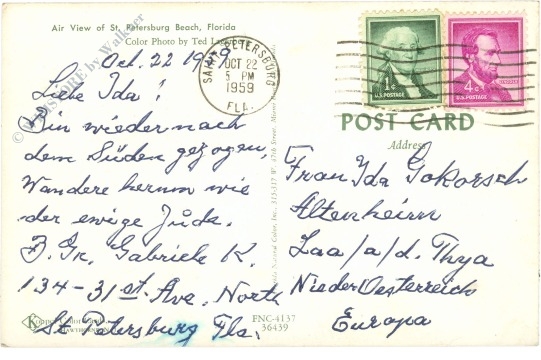 Air View of St. Petersburg Beach, Florida
Color Photo by Ted
Oct. 22 1959
Liebe Ida!
Bin wieder nach
dem Süden gezogen,
Wandere herum wie
der ewige Jude.
B. Gr. Gabriele K.
134-31 st. Ave. North
St. Petersburg Fla.
SAINT PETERSBURG
OCT 22
5 PM
1959
FLA.
1¢
U.S. POSTAGE
4¢
U.S. POSTAGE
POST CARD
Address
Frau Ida Gokorsch
Altenheim
Laa/a/d. Thya
NiederOesterreich
Europa
FNC-4137
36439
© by Walker